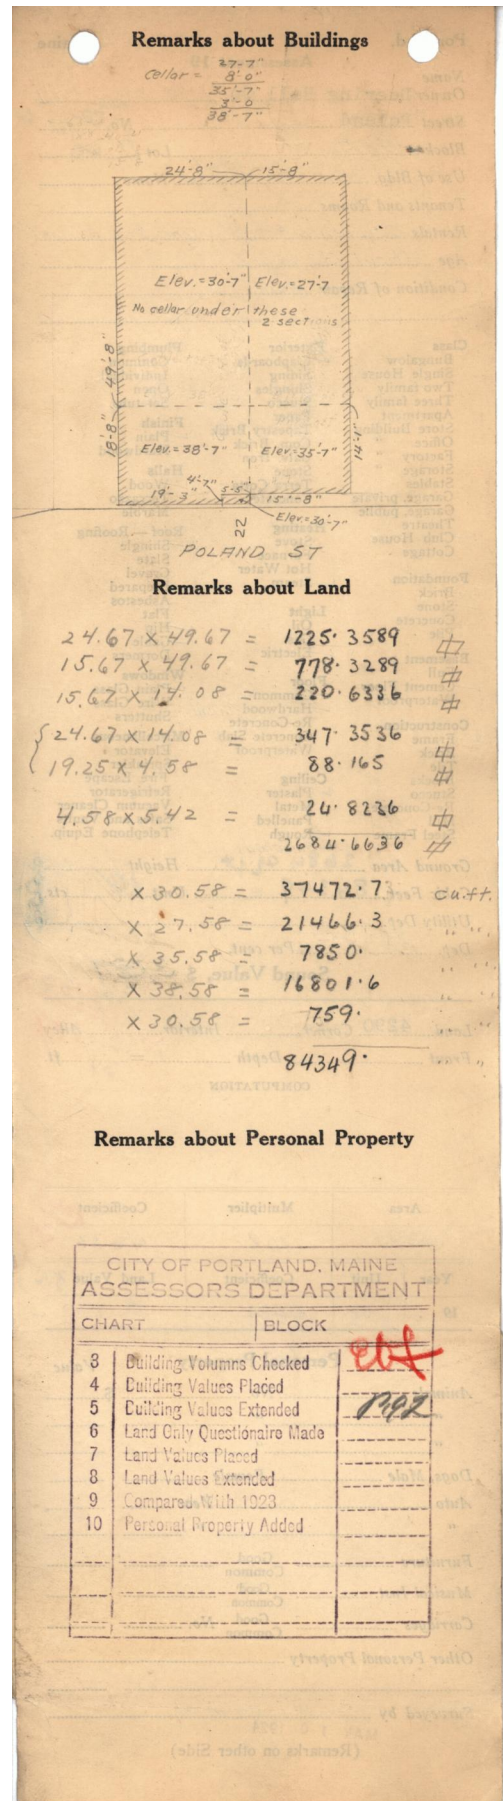 Remarks about Buildings
27'-7"
Cellar = 8'-0"
35'-7"
3'-0
38'-7"
24'-8" 15'-8"
Elev.=30'-7" Elev.=27'-7
No cellar under these
2 sections
49'-8"
18'-8"
14'-1"
Elev.=38'-7" Elev.=35'-7"
4'-7"
19'-3" 5'-5" 15'-8"
Elev.=30'-7"
22
POLAND ST
Remarks about Land
24.67 x 49.67 = 1225.3589
15.67 x 49.67 = 778.3289
15.67 x 14.08 = 220.6336
24.67 x 14.08 = 347.3536
19.25 x 4.58 = 88.165
4.58 x 5.42 = 24.8236
2684.6636
x 30.58 = 37472.7 cu.ft.
x 27.58 = 21466.3 " "
x 35.58 = 7850. " "
x 38.58 = 16801.6 " "
x 30.58 = 759. " "
84349.
Remarks about Personal Property
CITY OF PORTLAND, MAINE
ASSESSORS DEPARTMENT
CHART BLOCK
3 Building Volumns Checked
4 Building Values Placed
5 Building Values Extended
6 Land Only Questionaire Made
7 Land Values Placed
8 Land Values Extended
9 Compared With 1923
10 Personal Property Added